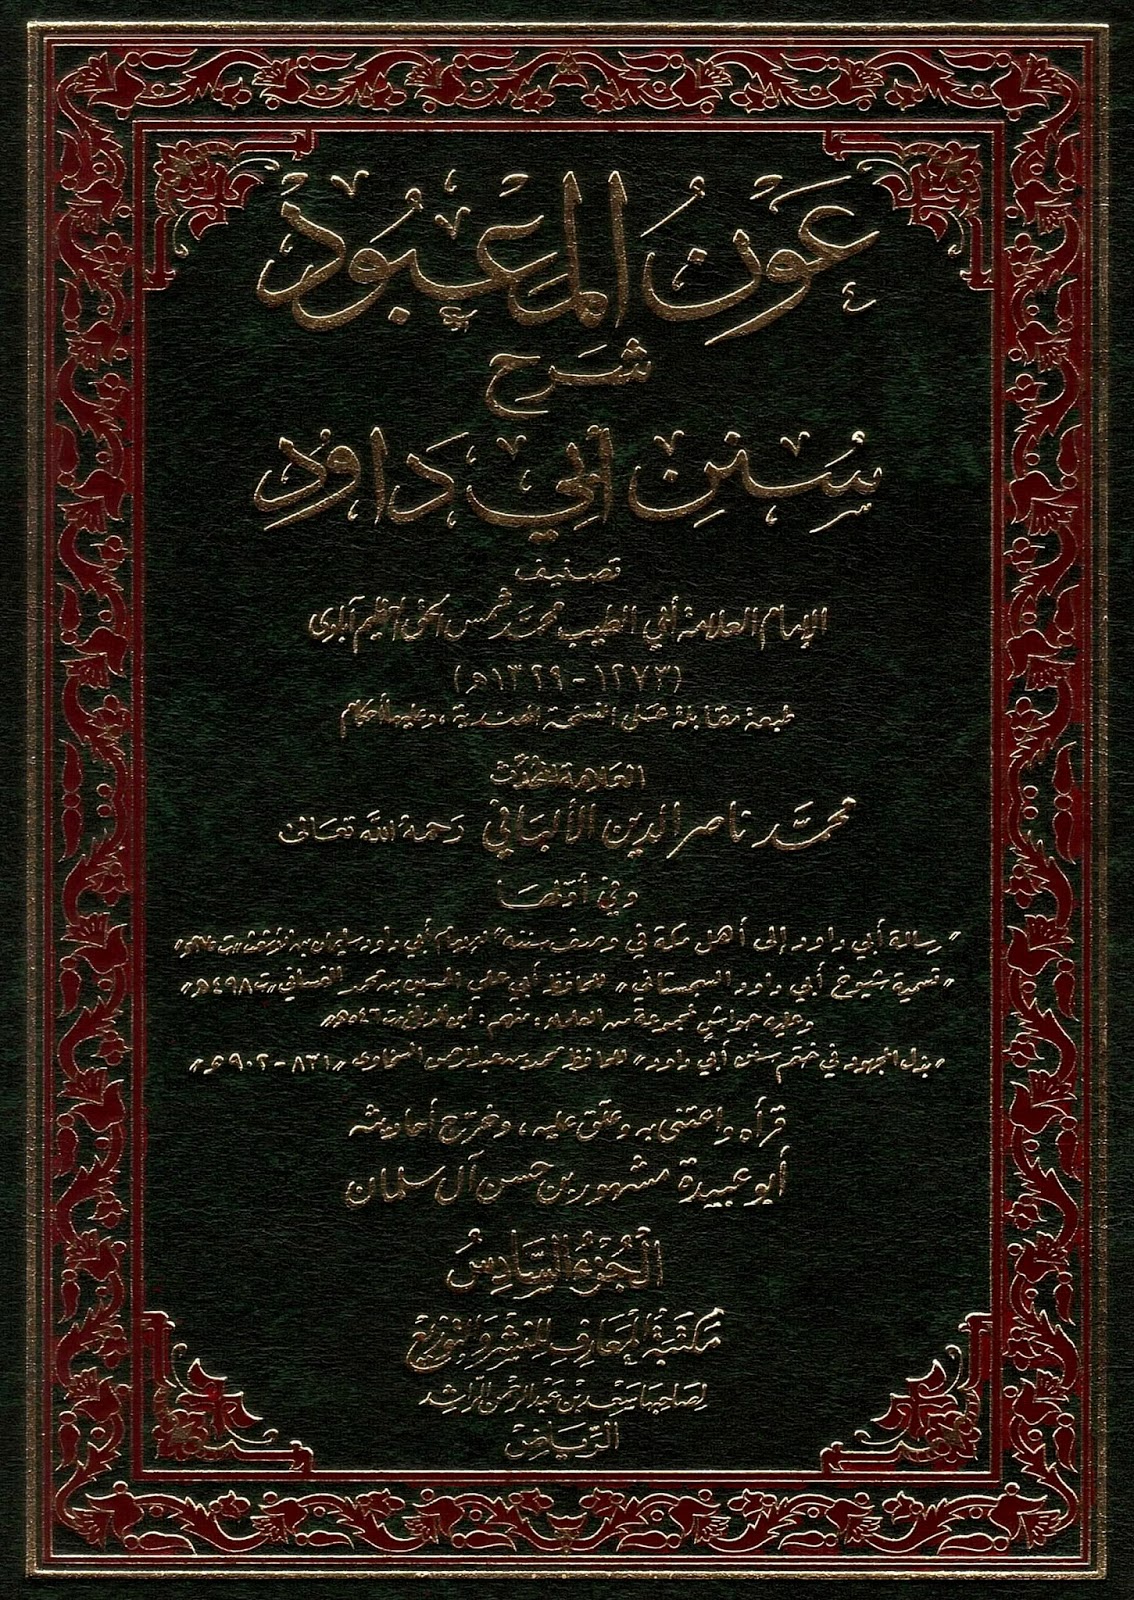 عَوْنُ المَعْبُود
شَرح
سُنَنِ أبي دَاوُد
تصنيف
الإمام العلامة أبي الطيب محمد شمس الحق العظيم آبادي
(١٢٧٣ - ١٣٢٩ هـ)
طبعة مقابلة على النسخة الهندية، وعليها أحكام
العلامة المحدّث
محمَّد ناصر الدين الألباني رحمه الله تعالى
وفي أولها
"رسالة أبي داود إلى أهل مكة في وصف سننه" للإمام أبي داود سليمان بن الأشعث
"تسمية شيوخ أبي داود السجستاني" للحافظ أبي علي الحسين بن محمد الغساني "ت ٤٩٨ هـ"
وعليه حواشي مجموعة من العلماء، منهم:
"بذل المجهود في ختم سنن أبي داود" للحافظ محمد بن عبدالرحمن السخاوي "٨٣١ - ٩٠٢ هـ"
قرأه واعتنى به وعلّق عليه، وخرّج أحاديثه
أبو عبيدة مشهور بن حسن آل سلمان
الجُزءُ السَّادِسُ
مكتَبة المعَارف للنشر والتوزيع
لصَاحبها سَعد بن عَبد الرحمن الراشد
الريَاض